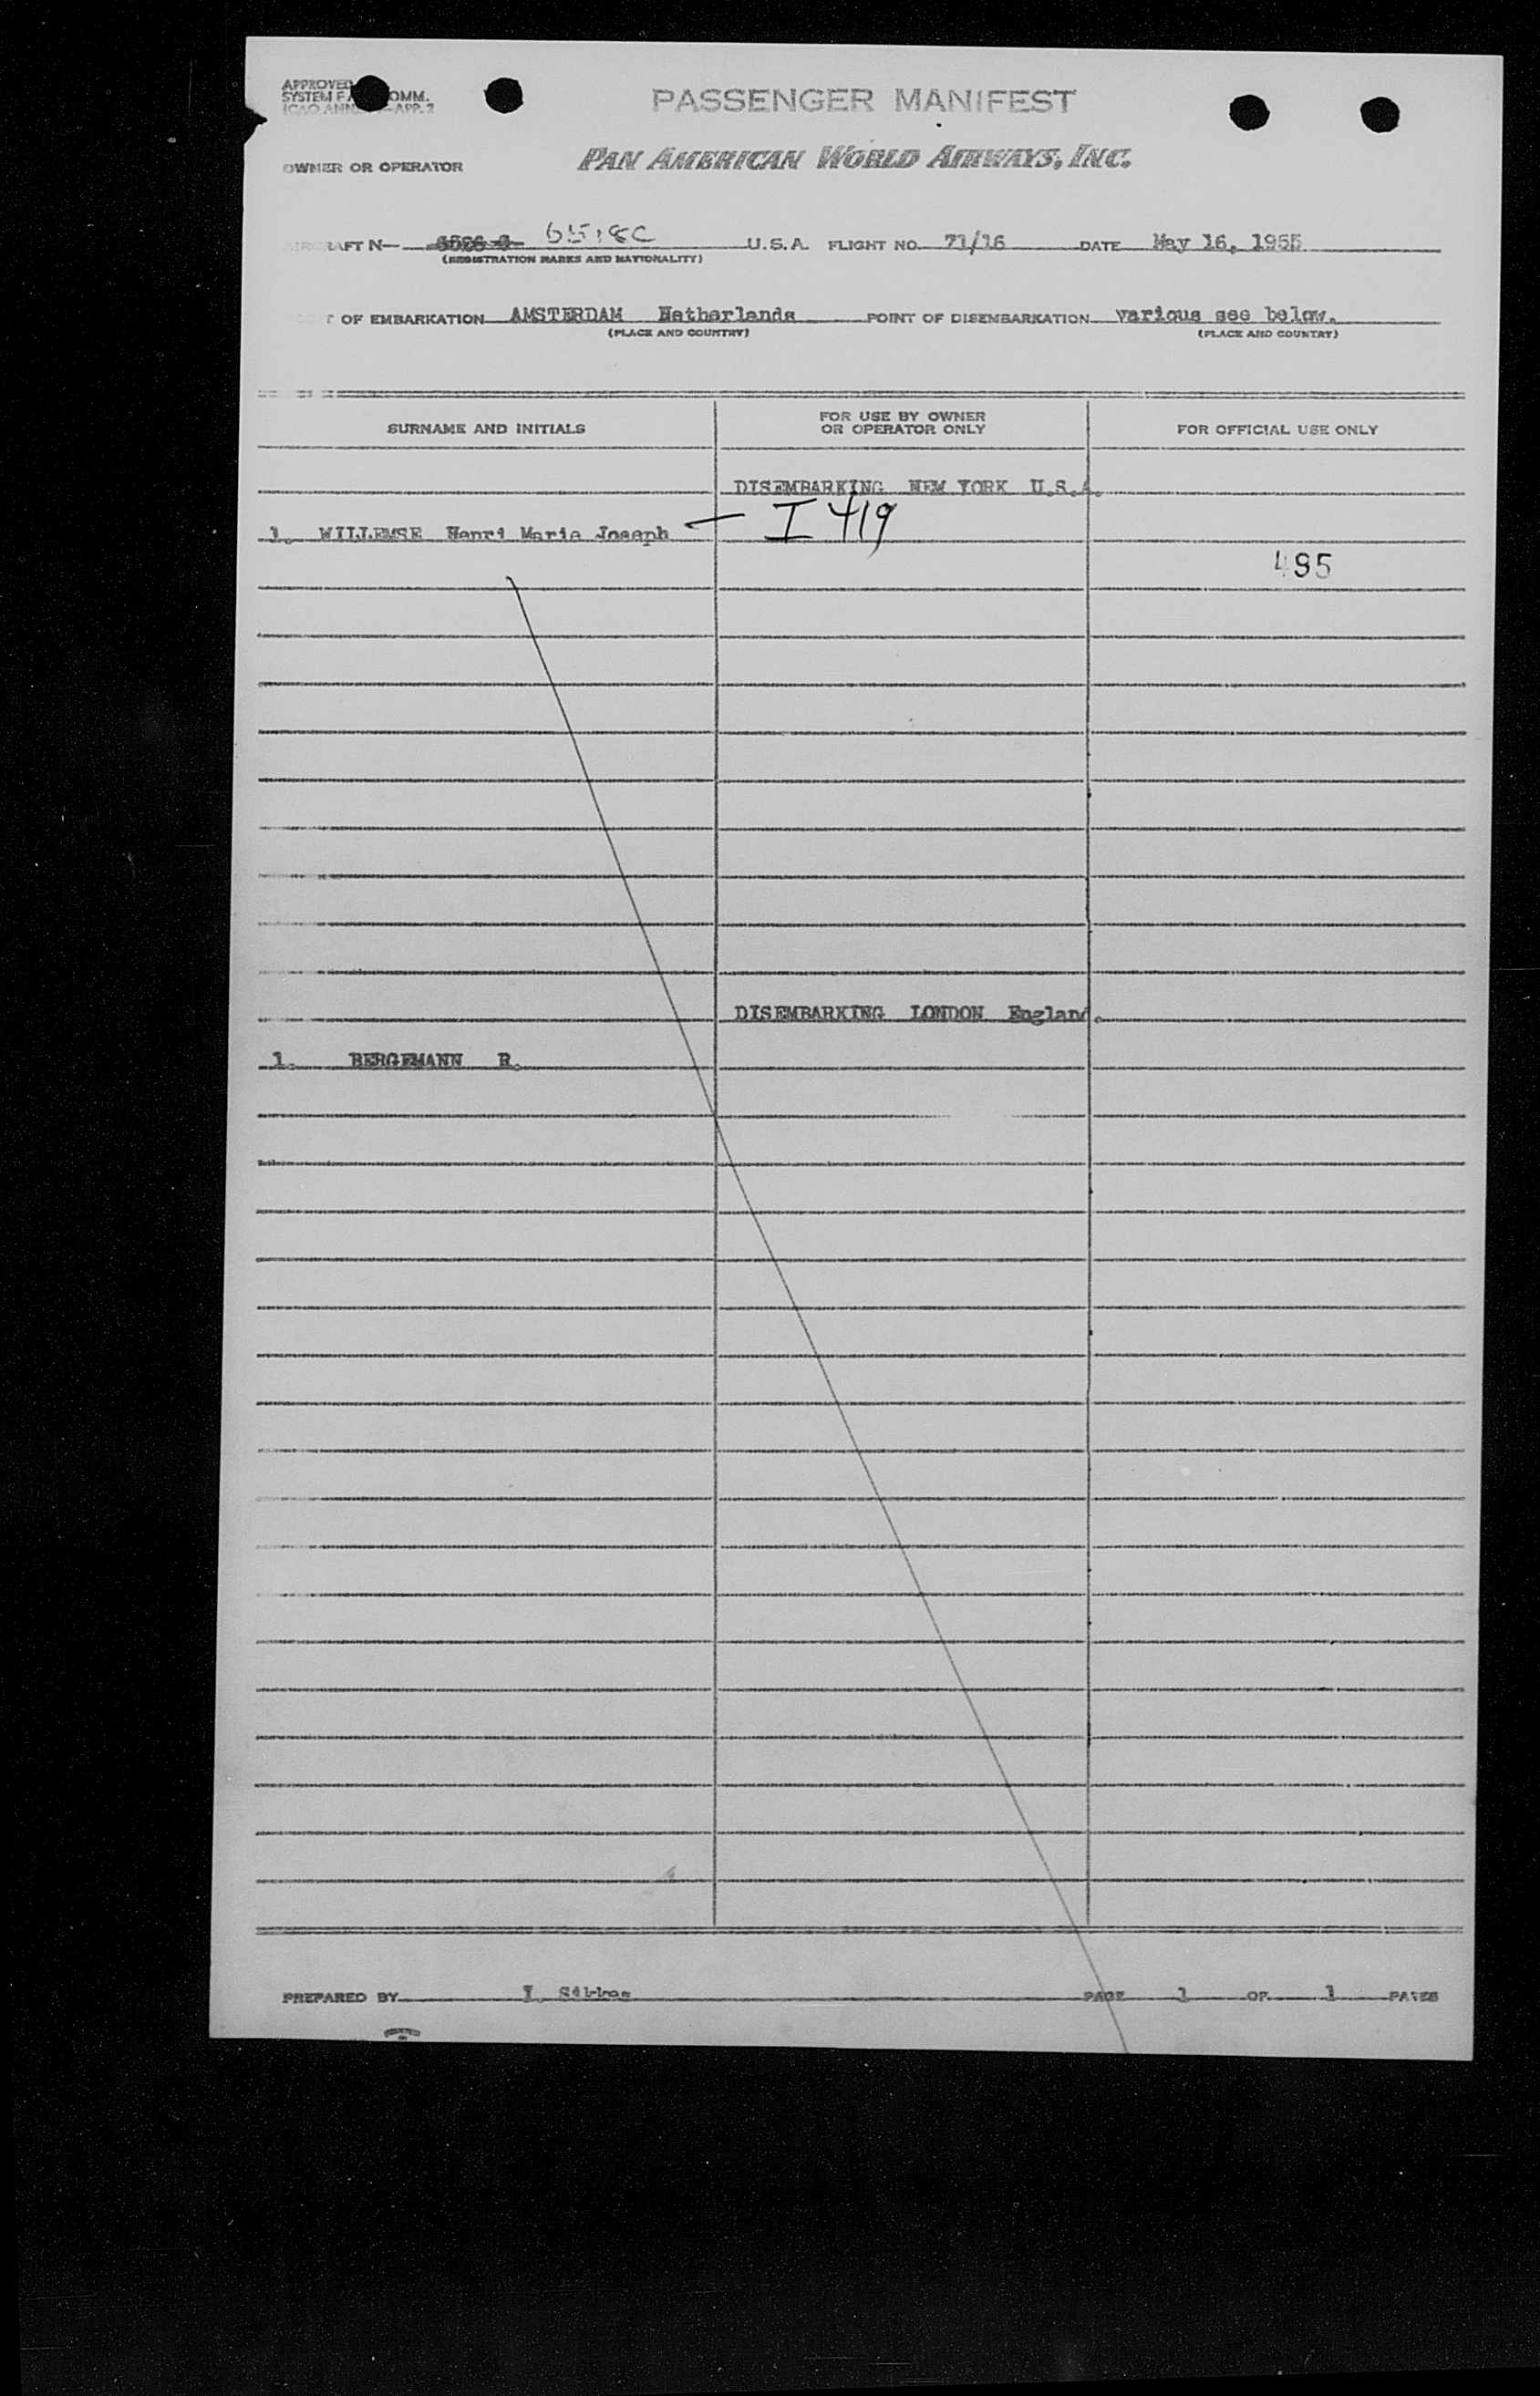 APPROVED
SYSTEM F OMM.
ICAO ANN APP. 2
PASSENGER MANIFEST
OWNER OR OPERATOR PAN AMERICAN WORLD AIRWAYS, INC.
AIRCRAFT N— 6518C U.S.A. FLIGHT NO. 71/16 DATE May 16, 1955
(REGISTRATION MARKS AND NATIONALITY)
T OF EMBARKATION AMSTERDAM Netherlands POINT OF DISEMBARKATION various see below.
(PLACE AND COUNTRY) (PLACE AND COUNTRY)
SURNAME AND INITIALS FOR USE BY OWNER OR OPERATOR ONLY FOR OFFICIAL USE ONLY
DISEMBARKING NEW YORK U.S.A.
1. WILLEMSE Henri Marie Joseph — I 419
495
DISEMBARKING LONDON England.
1. BERGEMANN R.
PREPARED BY PAGE 1 OF 1 PAGES